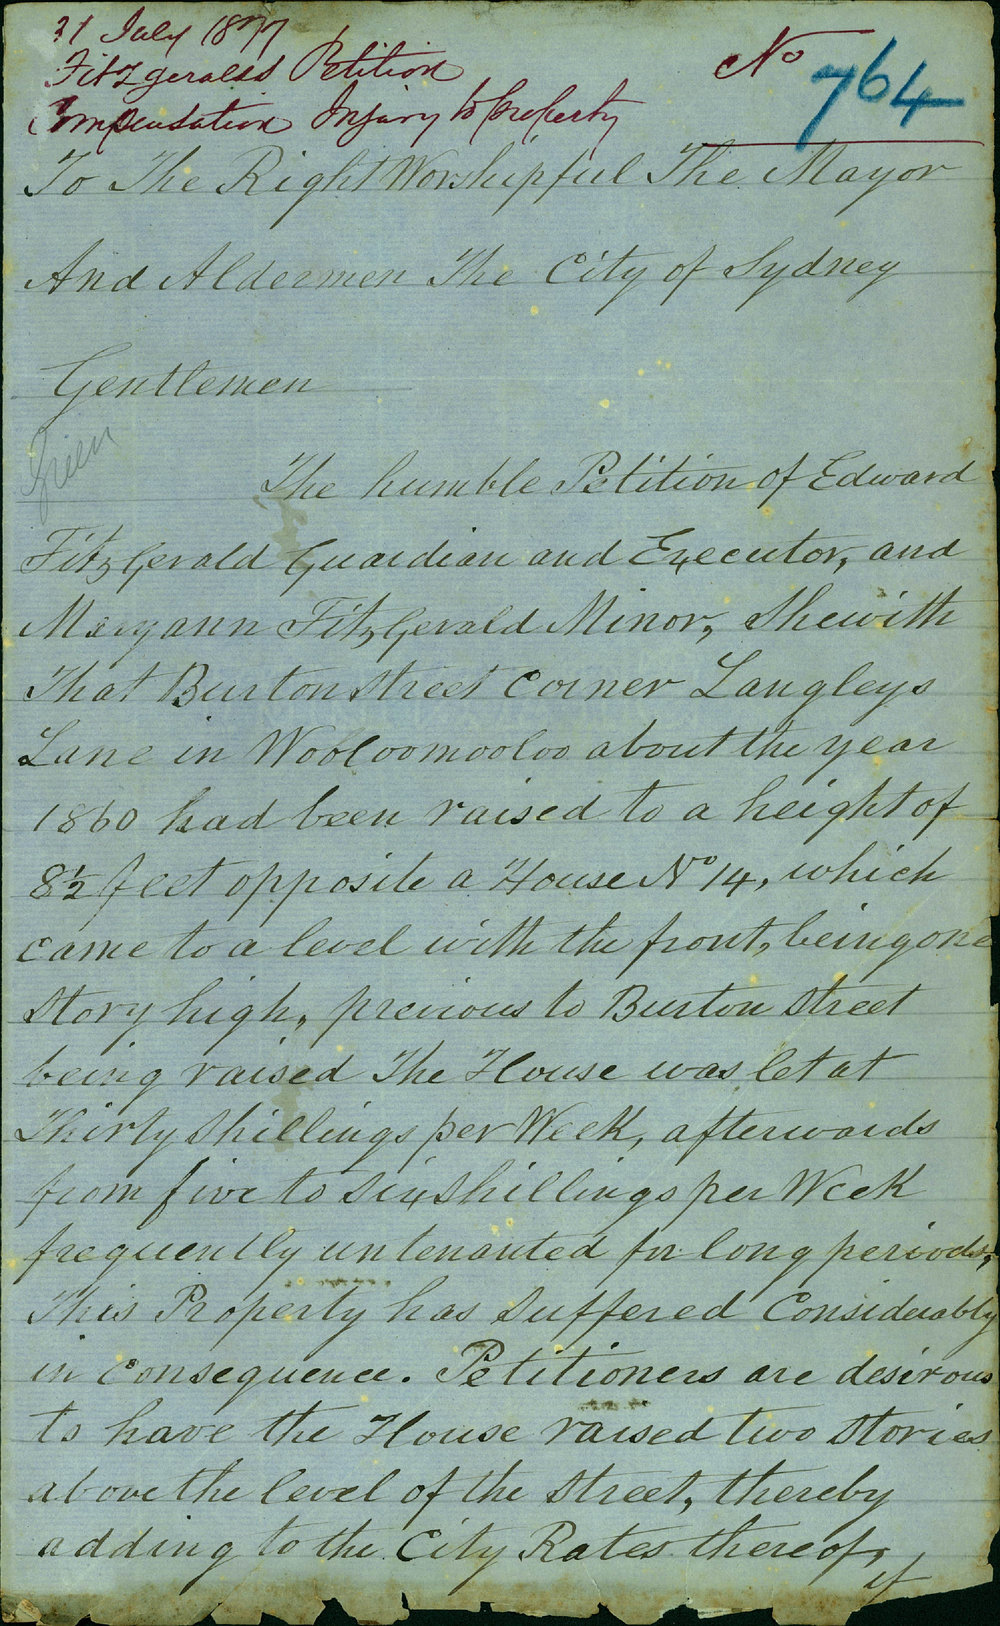 31 July 1877
Fitzgeralds Petition
Compensation Injury to Property
No 764
To The Right Worshipful The Mayor
And Aldermen The City of Sydney
Gentlemen
Green
The humble Petition of Edward
FitzGerald Guardian and Executor, and
Maryann FitzGerald Minor, Shewith
That Burton Street Corner Langleys
Lane in Wooloomooloo about the year
1860 had been raised to a height of
8½ feet opposite a House No 14, which
came to a level with the front, being one
Story high, previous to Burton Street
being raised The House was let at
Thirty Shillings per Week, afterwards
from five to six Shillings per Week
frequently untenanted for long periods,
This Property has Suffered Considerably
in Consequence. Petitioners are desirous
to have the House raised two Stories
above the level of the Street, thereby
adding to the City Rates thereof,
if